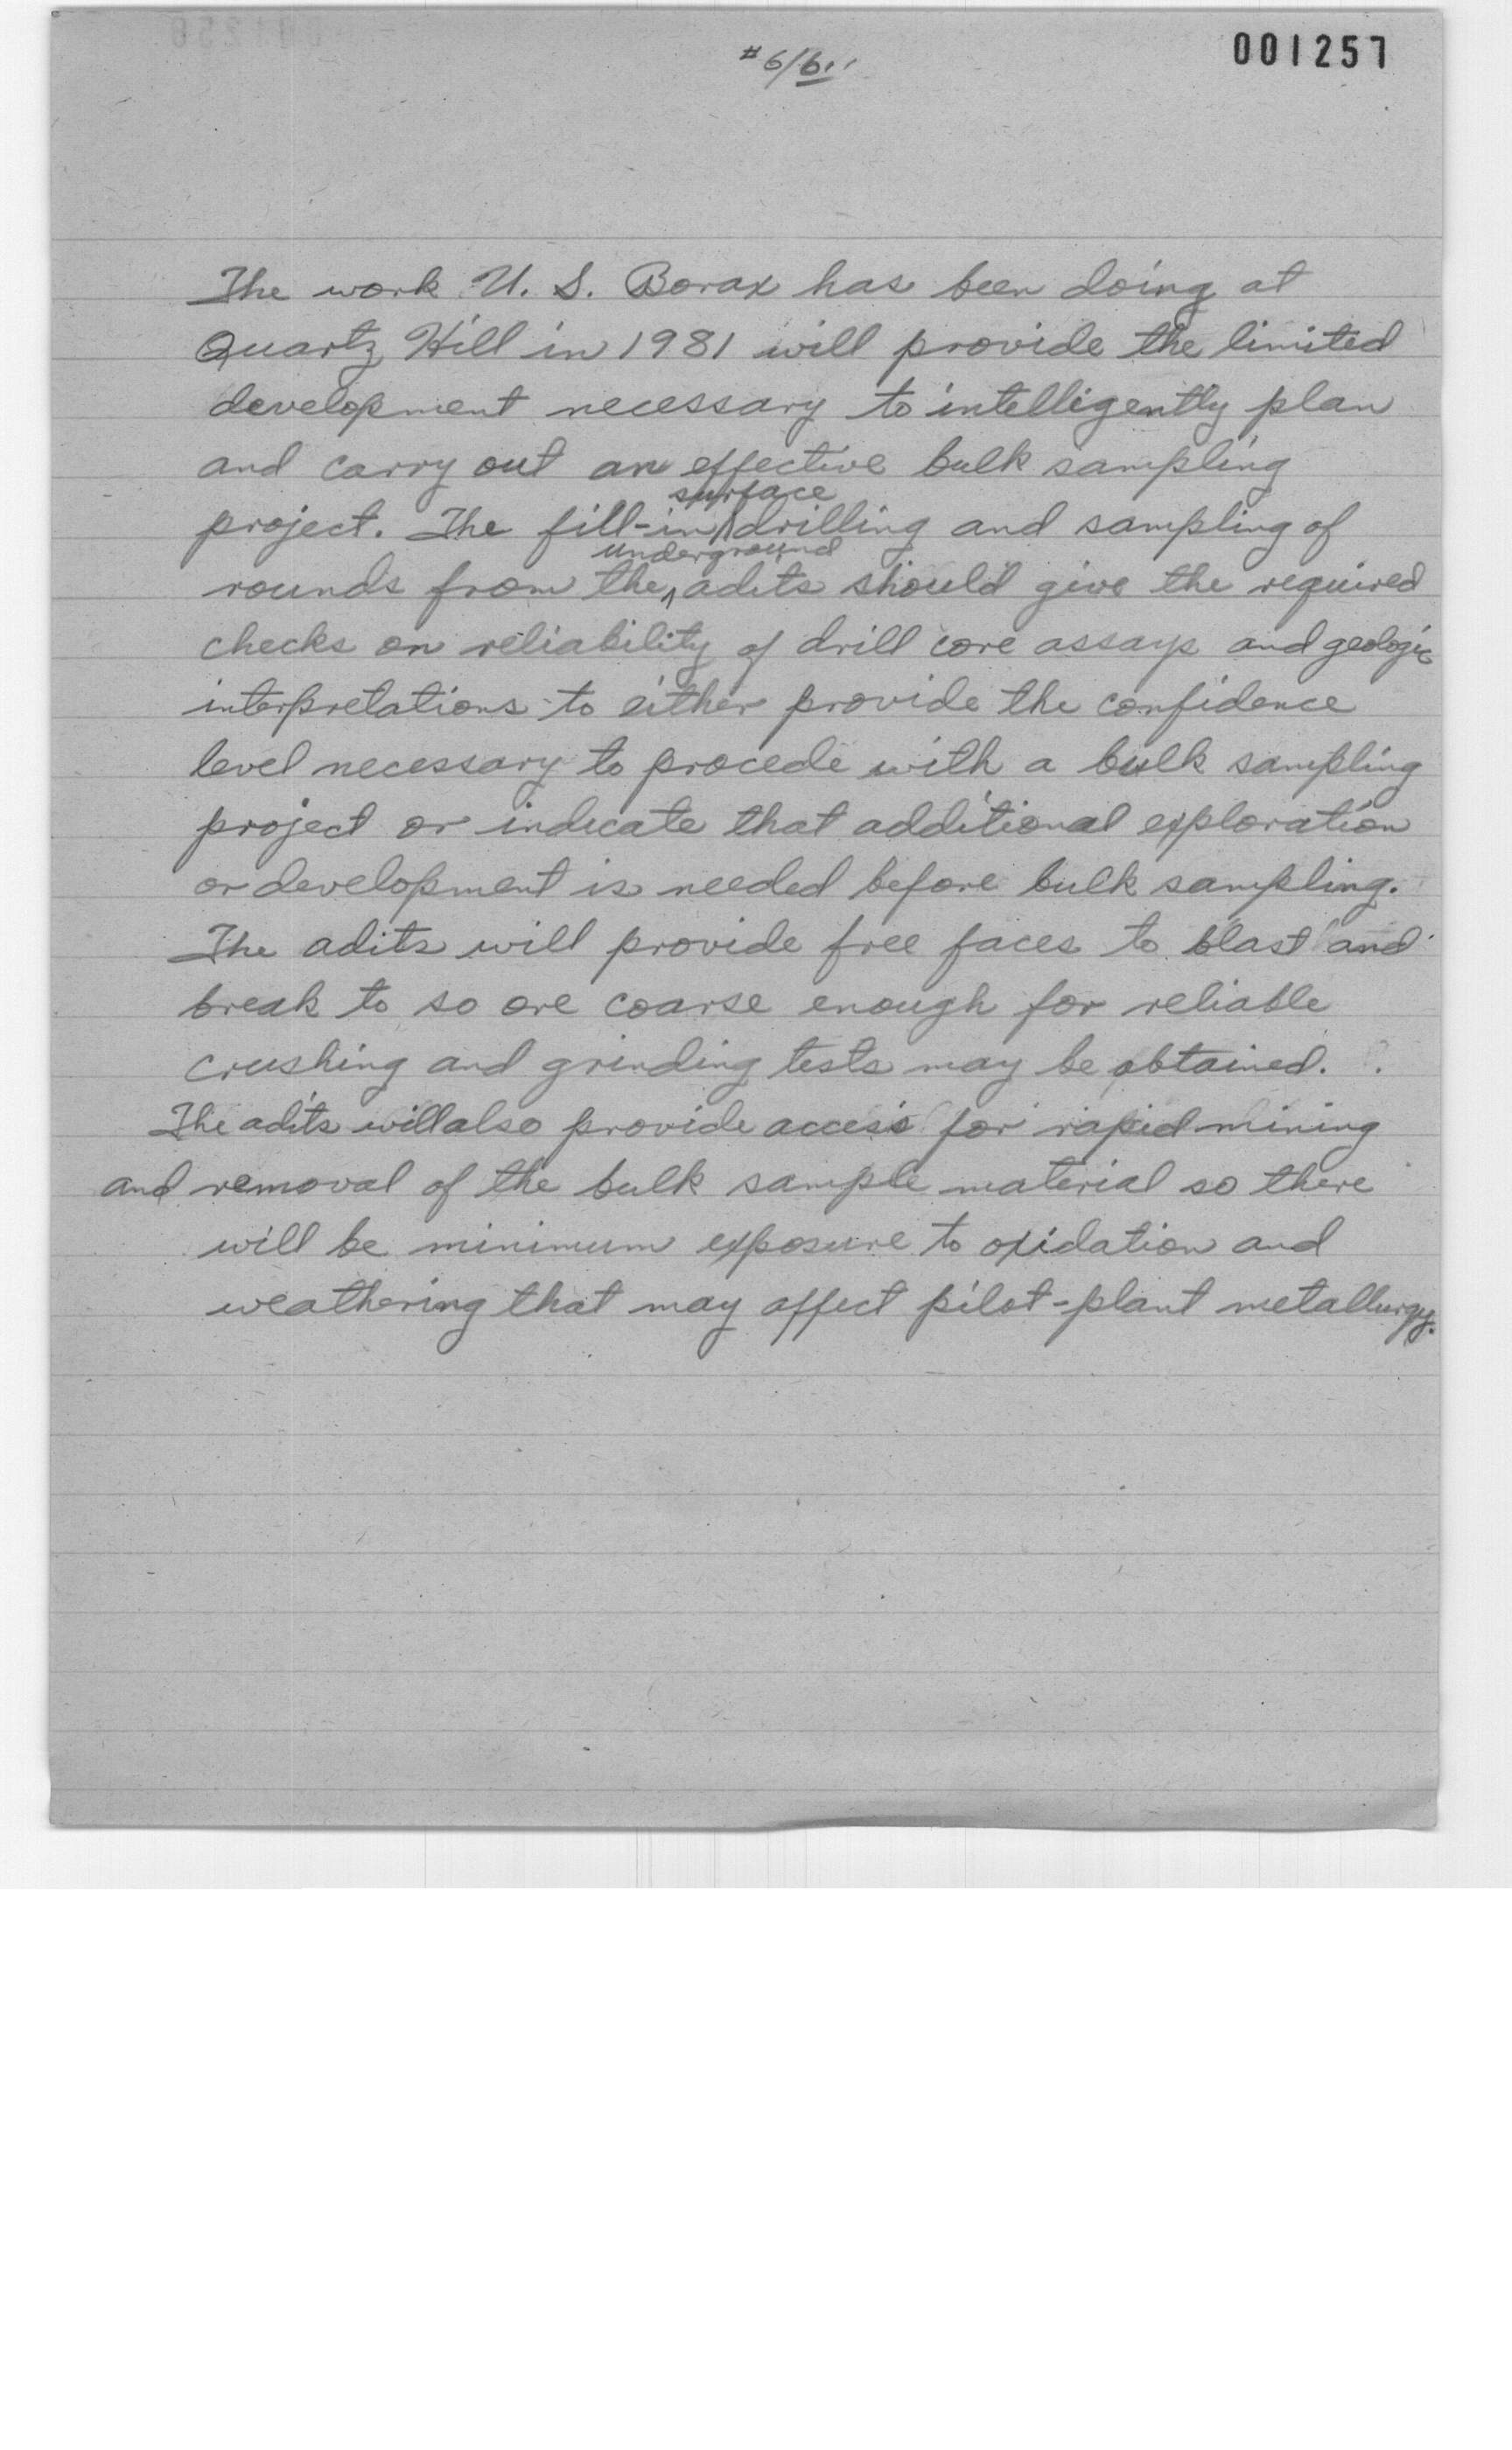 #6/6
001257
The work U. S. Borax has been doing at
Quartz Hill in 1981 will provide the limited
development necessary to intelligently plan
and carry out an effective bulk sampling
surface
project. The fill-in drilling and sampling of
underground
rounds from the adits should give the required
checks on reliability of drill core assays and geologic
interpretations to either provide the confidence
level necessary to procede with a bulk sampling
project or indicate that additional exploration
or development is needed before bulk sampling.
The adits will provide free faces to blast and
break to so ore coarse enough for reliable
crushing and grinding tests may be obtained.
The adits will also provide access for rapid mining
and removal of the bulk sample material so there
will be minimum exposure to oxidation and
weathering that may affect pilot-plant metallurgy.